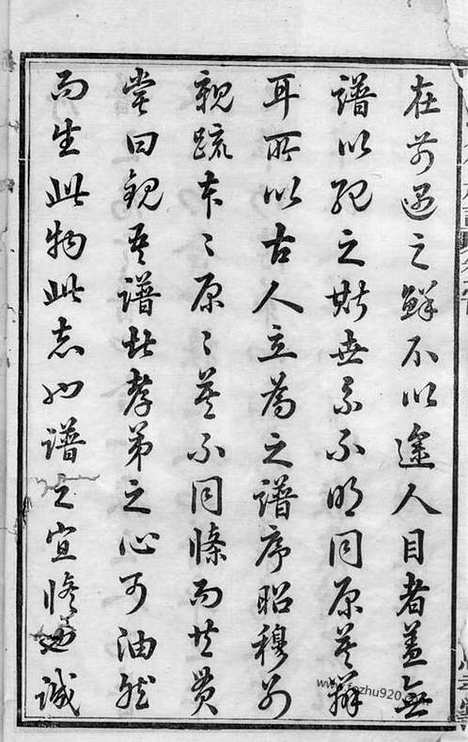 在前遇之鮮不以途人目者蓋無
譜以紀之則世系不明同原莫辨
耳所以古人立為之譜序昭穆別
親疏本〻原〻莫不同條而共貫
嘗曰觀吾譜者孝弟之心可油然
而生此物此志也譜之宜修也誠